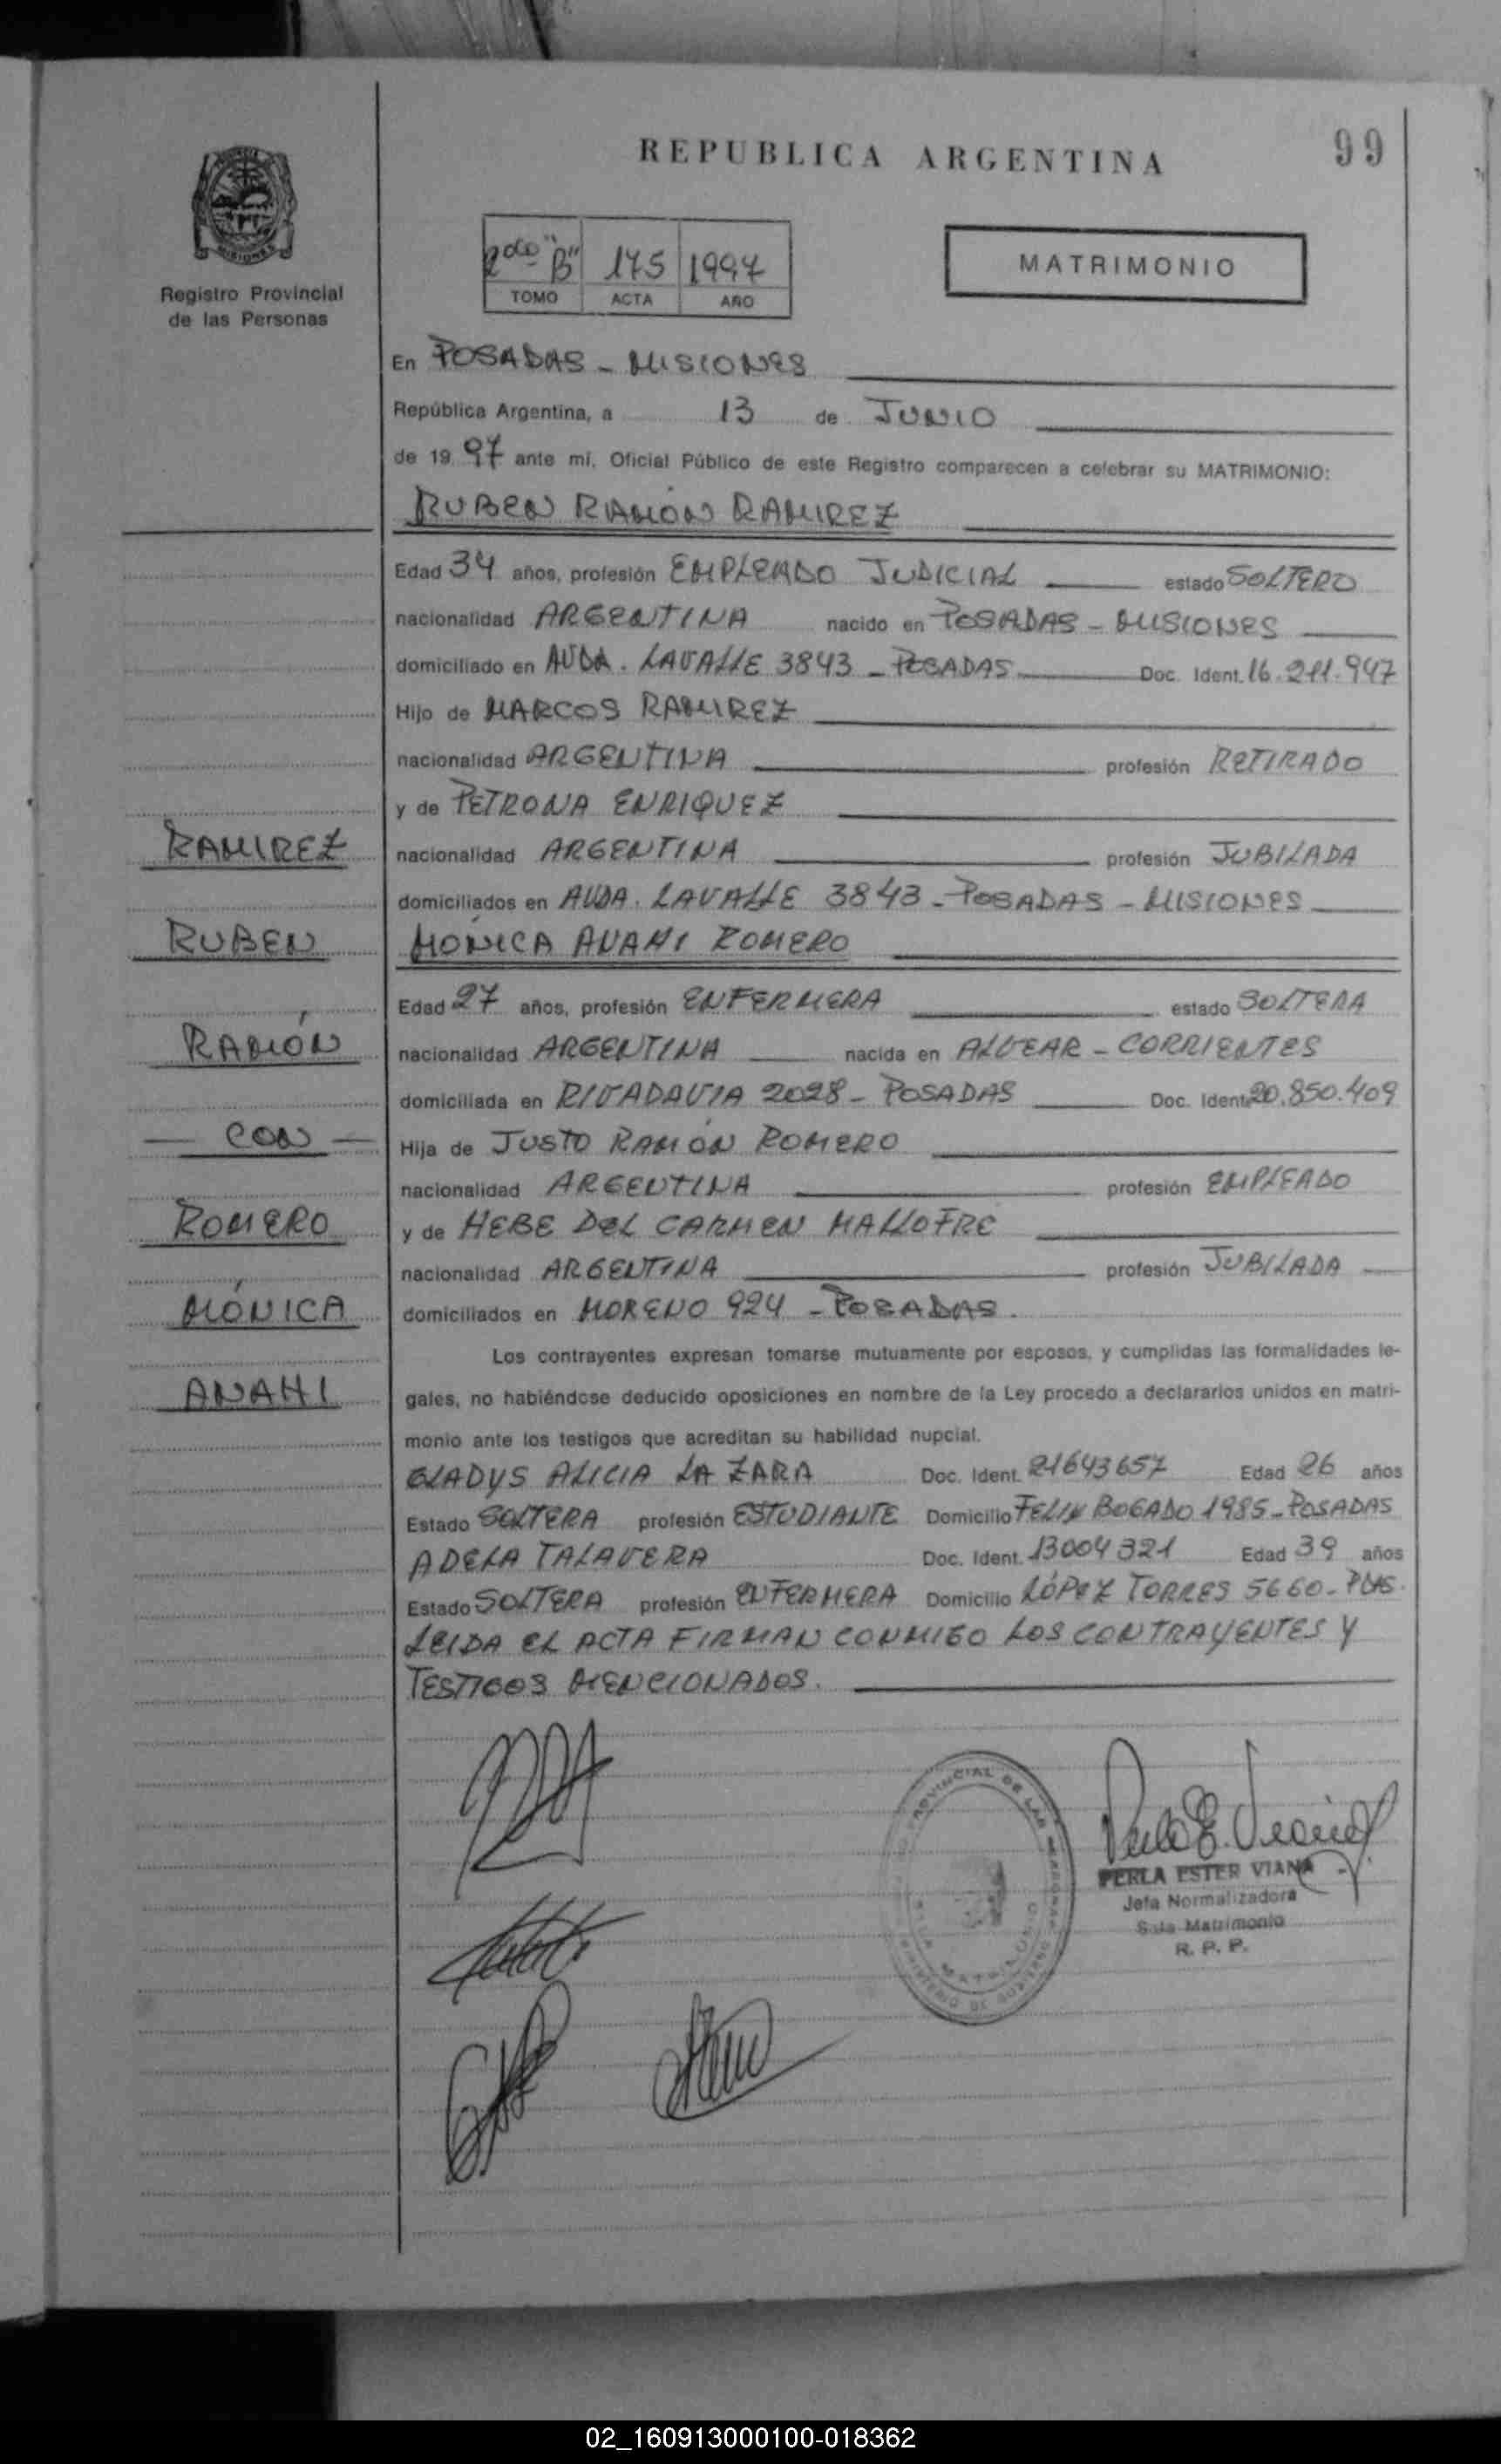 REPUBLICA ARGENTINA
99
MISIONES
Registro Provincial
de las Personas
2do "B" 175 1997
TOMO ACTA AÑO
MATRIMONIO
En POSADAS - MISIONES
República Argentina, a 13 de JUNIO
de 19 97 ante mí, Oficial Público de este Registro comparecen a celebrar su MATRIMONIO:
RUBEN RAMÓN RAMIREZ
Edad 34 años, profesión EMPLEADO JUDICIAL estado SOLTERO
nacionalidad ARGENTINA nacido en POSADAS - MISIONES
domiciliado en AVDA. LAVALLE 3843 - POSADAS Doc. Ident. 16.211.947
Hijo de MARCOS RAMIREZ
nacionalidad ARGENTINA profesión RETIRADO
y de PETRONA ENRIQUEZ
nacionalidad ARGENTINA profesión JUBILADA
domiciliados en AVDA. LAVALLE 3843 - POSADAS - MISIONES
MÓNICA ANAHI ROMERO
Edad 27 años, profesión ENFERMERA estado SOLTERA
nacionalidad ARGENTINA nacida en ALVEAR - CORRIENTES
domiciliada en RIVADAVIA 2028 - POSADAS Doc. Ident. 20.850.409
Hija de JUSTO RAMÓN ROMERO
nacionalidad ARGENTINA profesión EMPLEADO
y de HEBE DEL CARMEN MALLOFRE
nacionalidad ARGENTINA profesión JUBILADA
domiciliados en MORENO 924 - POSADAS.
RAMIREZ
RUBEN
RAMÓN
- CON -
ROMERO
MÓNICA
ANAHI
Los contrayentes expresan tomarse mutuamente por esposos, y cumplidas las formalidades le-
gales, no habiéndose deducido oposiciones en nombre de la Ley procedo a declararlos unidos en matri-
monio ante los testigos que acreditan su habilidad nupcial.
GLADYS ALICIA LA ZARA Doc. Ident. 21643657 Edad 26 años
Estado SOLTERA profesión ESTUDIANTE Domicilio FELIX BOGADO 1985 - POSADAS
ADELA TALAVERA Doc. Ident. 13004321 Edad 39 años
Estado SOLTERA profesión ENFERMERA Domicilio LÓPEZ TORRES 5660 - PDAS.
LEIDA EL ACTA FIRMAN CONMIGO LOS CONTRAYENTES Y
TESTIGOS MENCIONADOS.
PROVINCIAL DE LAS PERSONAS
SALA MATRIMONIO
MINISTERIO DE GOBIERNO
PERLA ESTER VIANA
Jefa Normalizadora
Sala Matrimonio
R. P. P.
02_160913000100-018362